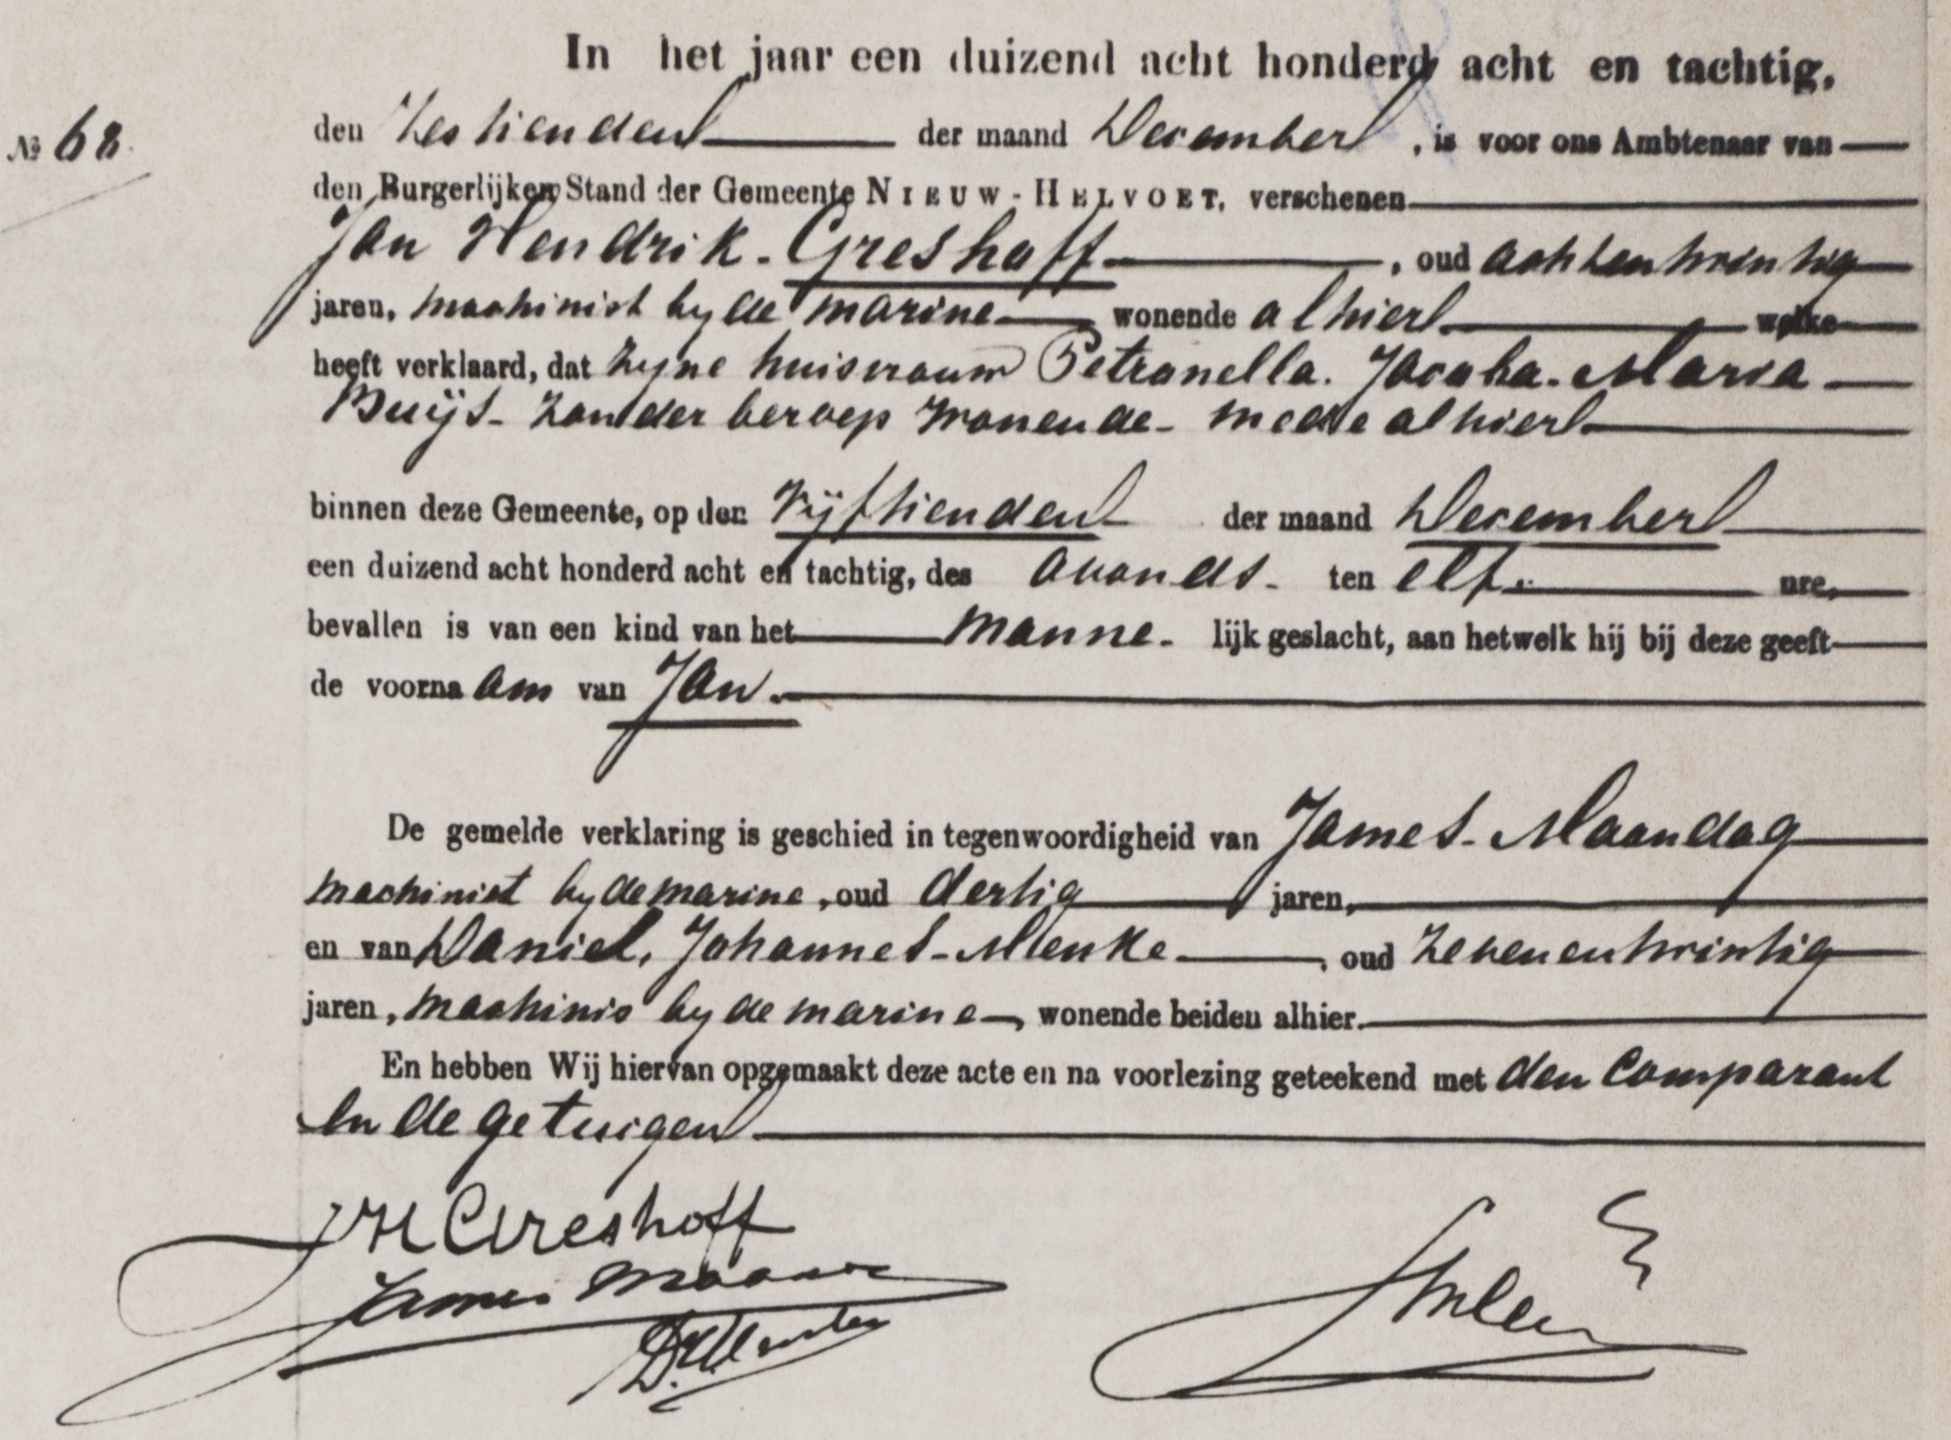 In het jaar een duizend acht honderd acht en tachtig,
№ 68
den Zestienden der maand December, is voor ons Ambtenaar van
den Burgerlijken Stand der Gemeente NIEUW-HELVOET, verschenen
Jan Hendrik Greshoff, oud achtentwintig
jaren, machinist by de marine wonende alhier welke
heeft verklaard, dat zyne huisvrouw Petronella Jacoba Maria
Buijs zonder beroep wonende mede alhier
binnen deze Gemeente, op den Vijftienden der maand December
een duizend acht honderd acht en tachtig, des avonds ten elf ure,
bevallen is van een kind van het manne- lijk geslacht, aan hetwelk hij bij deze geeft
de voornaam van Jan.
De gemelde verklaring is geschied in tegenwoordigheid van James Maandag
machinist by de marine, oud dertig jaren,
en van Daniel, Johannes Menke, oud zevenentwintig
jaren, machinis by de marine, wonende beiden alhier.
En hebben Wij hiervan opgemaakt deze acte en na voorlezing geteekend met den Comparant
en de getuigen
JH Greshoff
James